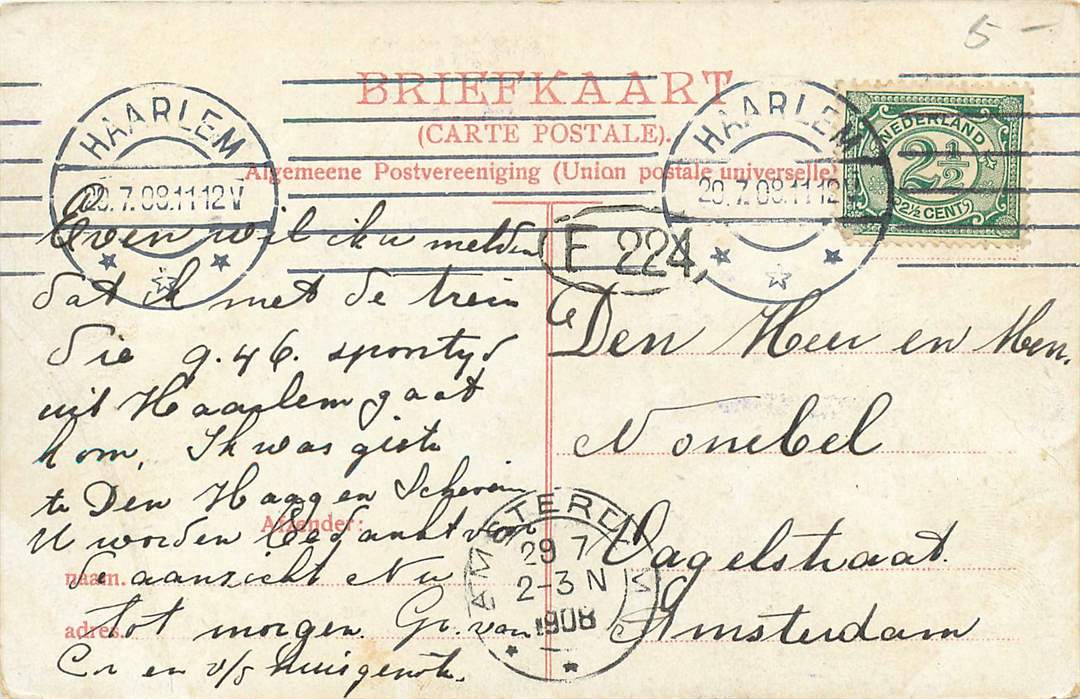 5 -
BRIEFKAART
(CARTE POSTALE).
Algemeene Postvereeniging (Union postale universelle)
HAARLEM
29.7.08.11-12V
HAARLEM
29.7.08.11-12
NEDERLAND
2½
2½ CENT
F 224
Even wil ik u melden
dat ik met de trein
die 9.46. spoortyd
uit Haarlem gaat
kom, Ik was giste
te Den Haag en Schevein
U worden bedankt voor
de aanzicht Nu
tot morgen. Gr. van
Cr en v/s huisgenote.
Afzender:
naam.
adres.
Den Heer en Men.
Nonebel
Cagelstraat.
Amsterdam
AMSTERDAM
29 7
2-3 N
1908